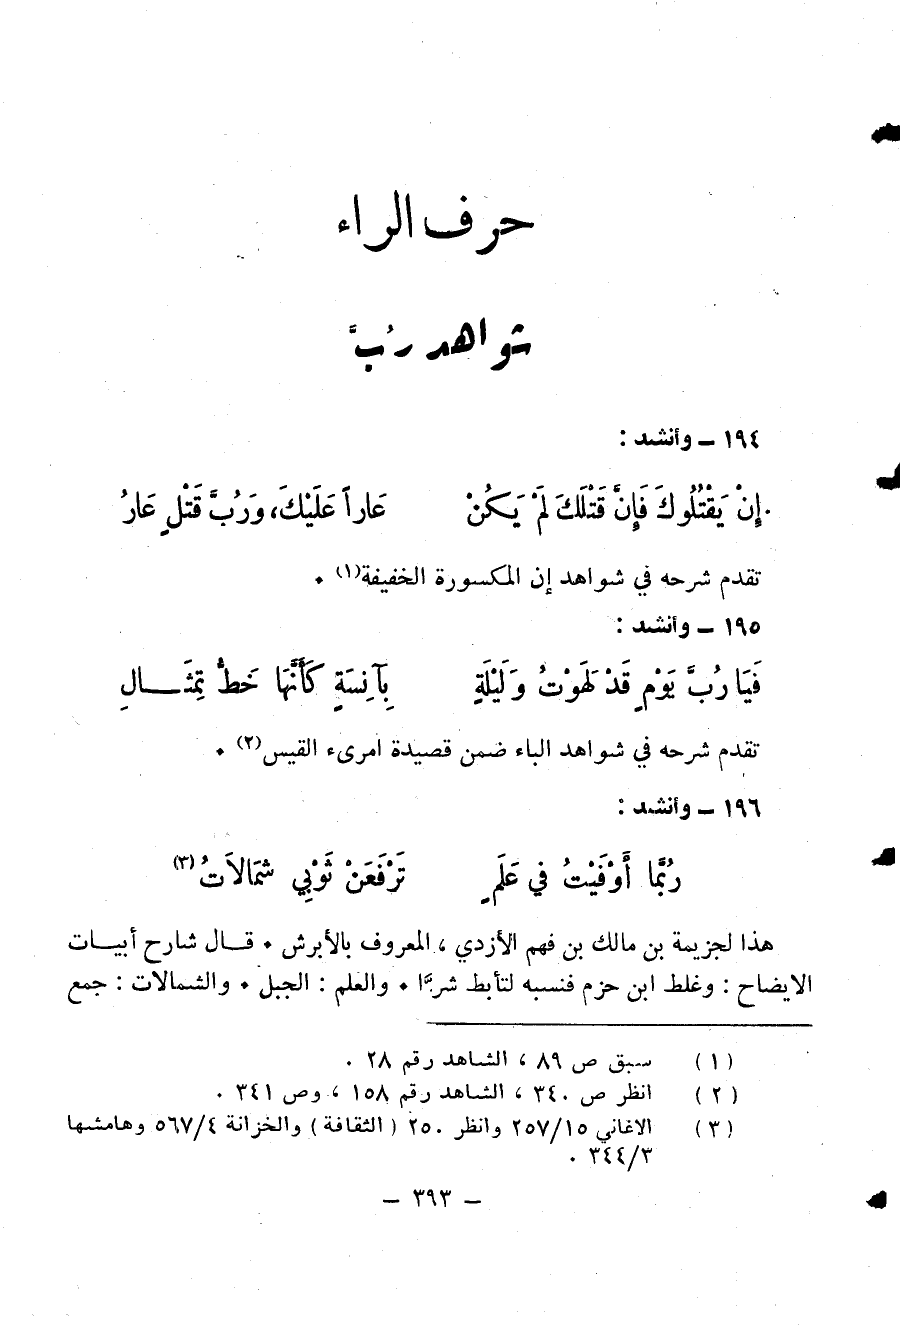 حرف الراء
شواهد رُبَّ
١٩٤ – وأنشد :
إِنْ يَقْتُلُوكَ فَإِنَّ قَتْلَكَ لَمْ يَكُنْ عَاراً عَلَيْكَ، وَرُبَّ قَتْلٍ عَارُ
تقدم شرحه في شواهد إن المكسورة الخفيفة(١) .
١٩٥ – وأنشد :
فَيَا رُبَّ يَوْمٍ قَدْ لَهَوْتُ وَلَيْلَةٍ بِآنِسَةٍ كَأَنَّهَا خَطُّ تِمْثَـالِ
تقدم شرحه في شواهد الباء ضمن قصيدة امرىء القيس(٢) .
١٩٦ – وأنشد :
رُبَّمَا أَوْفَيْتُ فِي عَلَمٍ تَرْفَعَنْ ثَوْبِي شَمَالَاتُ(٣)
هذا لجزيمة بن مالك بن فهم الأزدي ، المعروف بالأبرش . قـال شارح أبيـات
الايضاح : وغلط ابن حزم فنسبه لتأبط شرّا . والعلم : الجبل . والشمالات : جمع
(١) سبق ص ٨٩ ، الشاهد رقم ٢٨ .
(٢) انظر ص ٣٤٠ ، الشاهد رقم ١٥٨ ، وص ٣٤١ .
(٣) الاغاني ٢٥٧/١٥ وانظر ٢٥٠ (الثقافة) والخزانة ٥٦٧/٤ وهامشها
٣٤٤/٣ .
– ٣٩٣ –